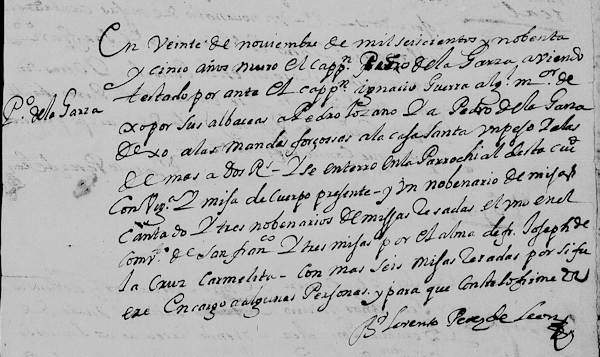 En Veinte de noviembre de mil seiscientos y nobenta
y cinco años murio el cappn Pedro de la Garza, aviendo
Po de la Garza
testado por ante el cappn ignacio Guerra algl mor de
xo por sus albaceas a Pedro Lozano Y a Pedro de la Garza
dexo a las mandas forçossas a la casa Santa Un peso Y a las
de mas a dos Rs - Y se enterro en la Parrochial desta ciud
Con Viga Y misa de cuerpo presente - y Un nobenario de misas
Cantado Y tres nobenarios de missas resadas el Uno en el
comvto de San franco Y tres misas por el alma de fr Joseph de
la Cruz Carmelita - Con mas seis misas resadas por si fu
ere En cargo a algunas Personas, y para que conste lo firme
Br Lorenso Perez de Leon